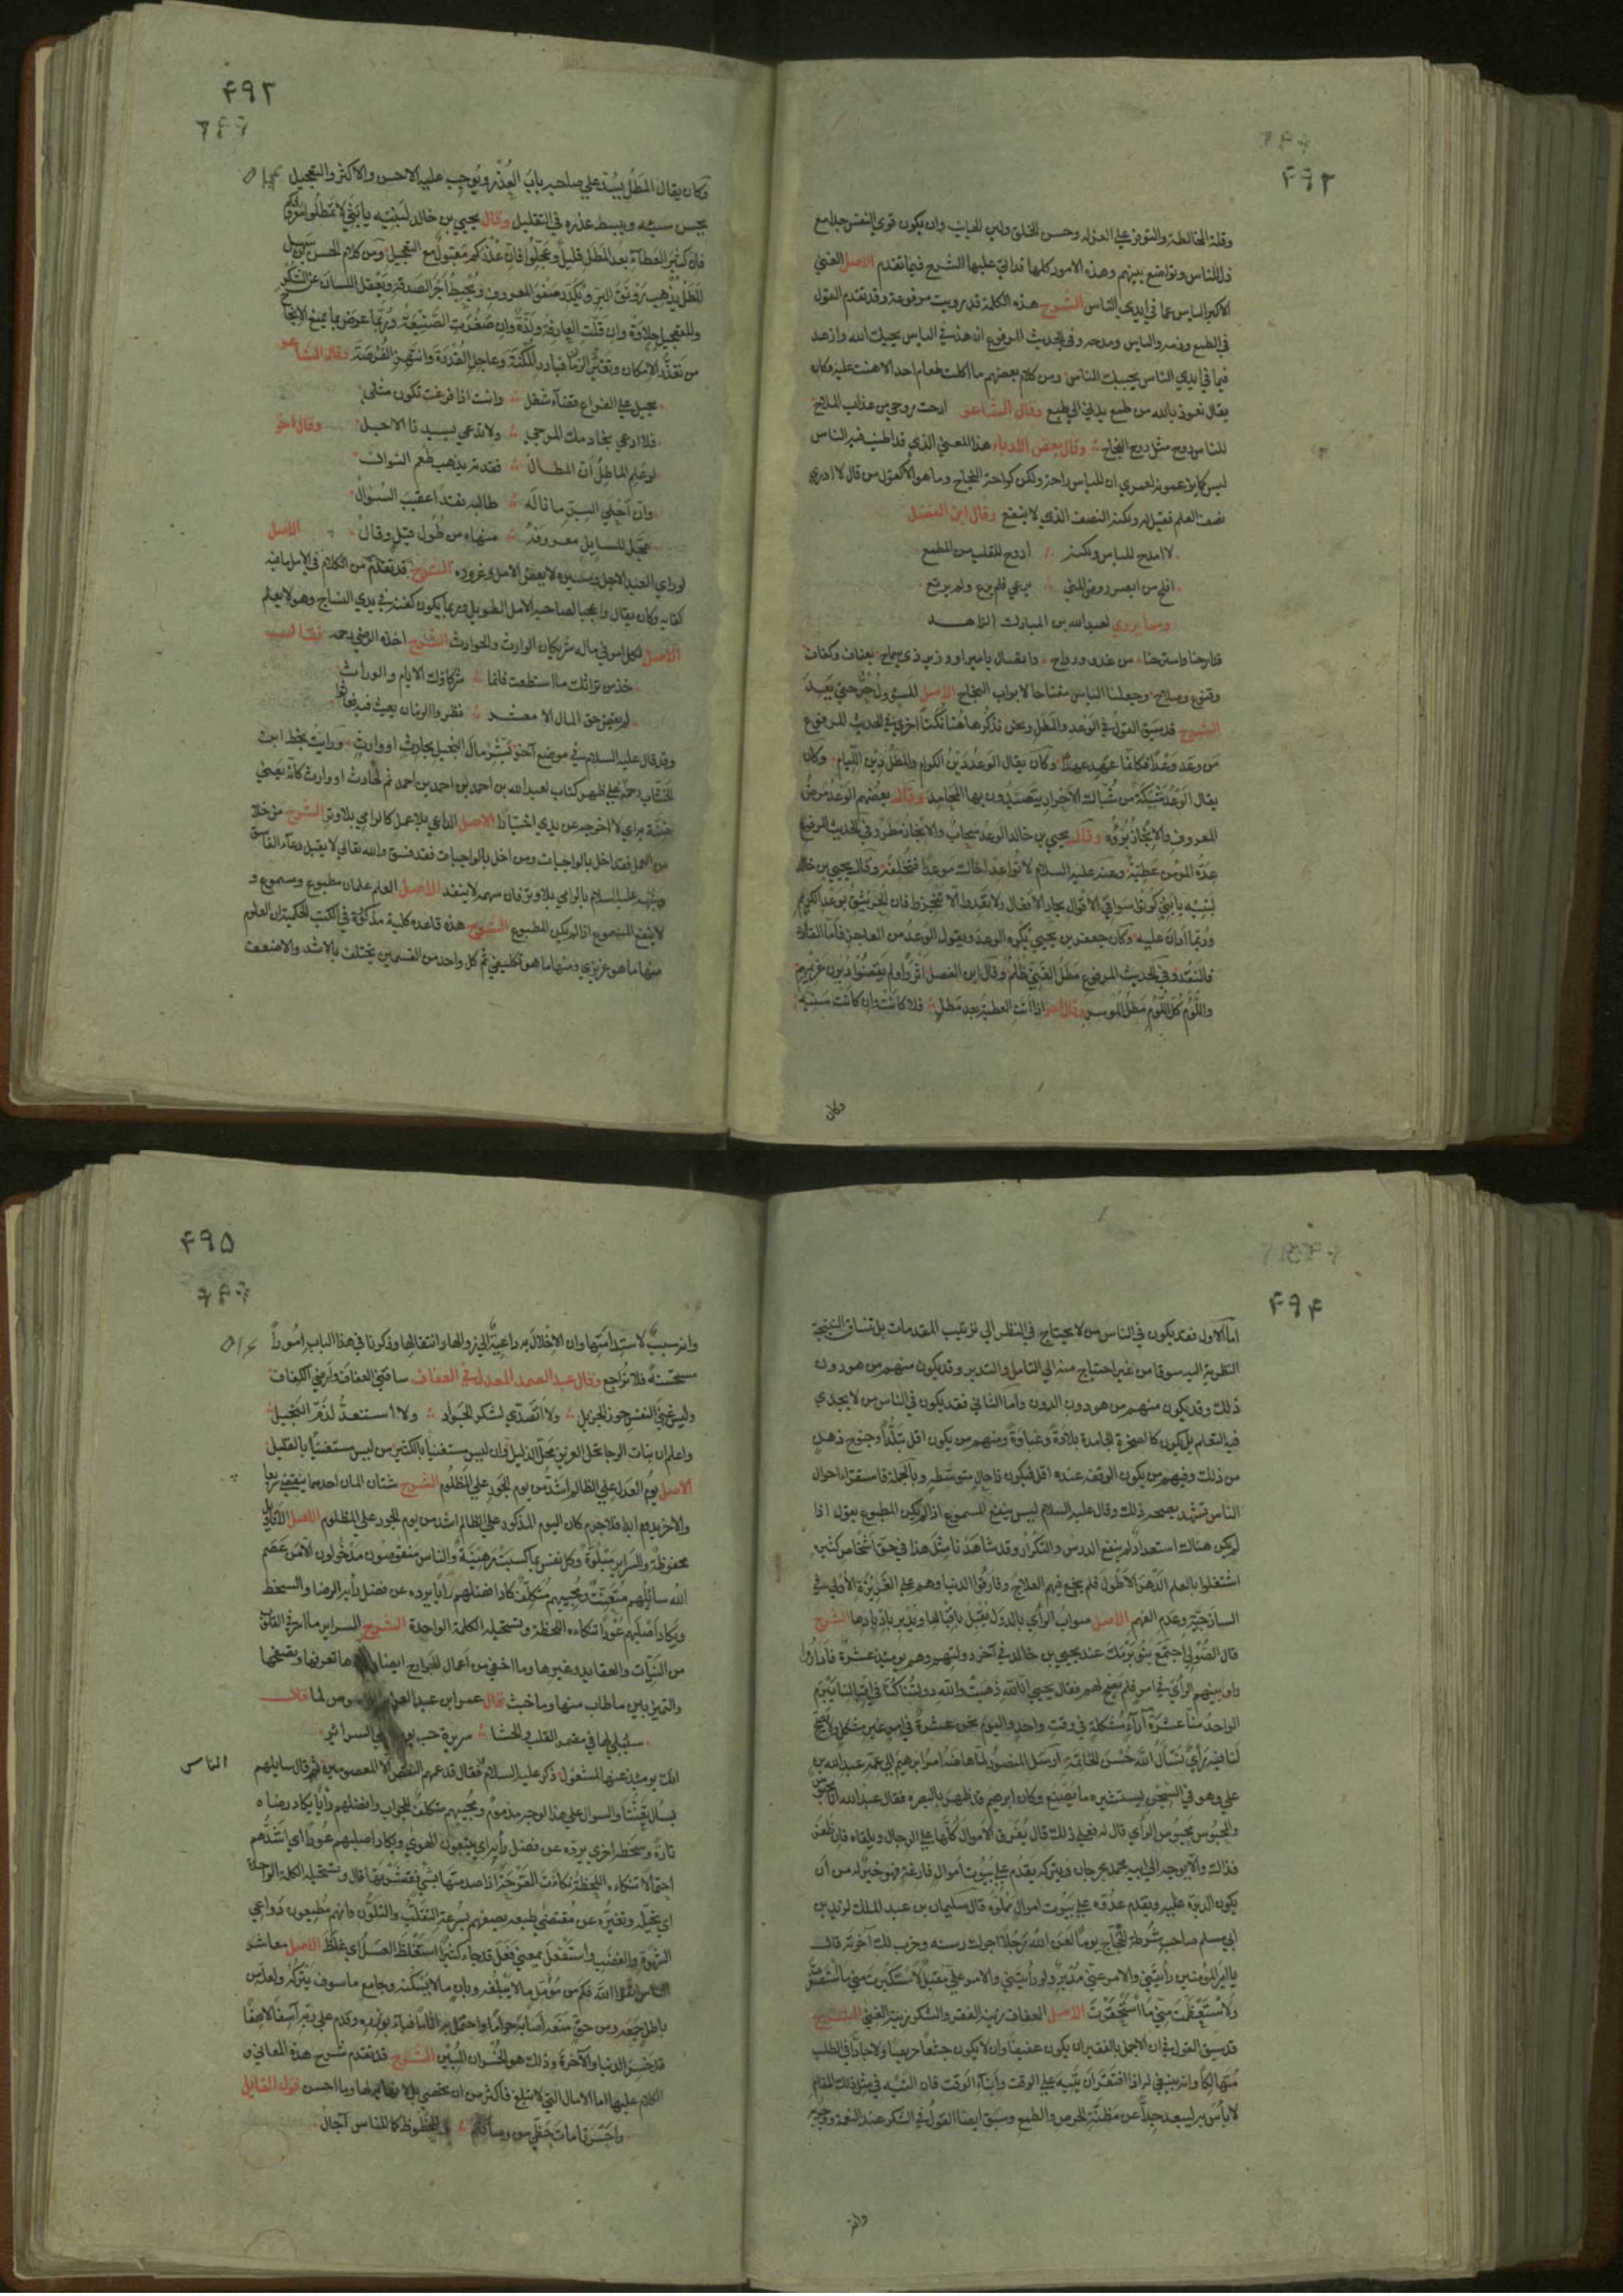 ۴۹۲
وقلة المخالطة والتوفر على العزلة وحسن الخلق ولين الجانب وان يكون قوي النفس جدا مع
ذل للناس وتواضع بينهم وهذه الامور كلها قد اتى عليها الشرح فيما تقدم الاصل الغنى
الاكبر الياس عما في ايدى الناس الشرح هذه الكلمة قد رويت مرفوعة وقد تقدم القول
في الطمع وذمه والياس ومدحه وفي الحديث المرفوع ازهد في الدنيا يحبك الله وازهد
فيما في ايدي الناس يحببك الناس ومن كلام بعضهم ما اكلت طعام احد الا هنت عليه وكان
يقال نعوذ بالله من طمع يدني الى طبع وقال الشاعر ارحت روحي من عذاب الملاح
للياس روح مثل روح النجاح وقال بعض الادباء هذا المعنى الذي قد اطنب فيه الناس
ليس كما يزعمونه لعمري ان للياس راحة ولكن كراحة النجاح وما هو الا كقول من قال لا ادري
نصف العلم فقيل له ولكنه النصف الذي لا ينفع وقال ابن الفضل
لا امدح الياس ولكنه اروح للقلب من المطمع
افلح من ابصر روض المنى يرعى فلم يرع ولم يرتع
ومما يروى لعبد الله بن المبارك الزاهد
قد ارحنا واسترحنا من غدو ورواح واتصال بامير او وزير ذي سماح بعفاف وكفاف
وقنوع وصلاح وجعلنا الياس مفتاحا لابواب النجاح الاصل المسؤول حر حتى يعد
الشرح قد سبق القول في الوعد والمطل ونحن نذكر هاهنا نكتا اخرى في الحديث المرفوع
من وعد وعدا فكانما عهد عهدا وكان يقال الوعد دين الكرام والمطل دين اللئام وكان
يقال الوعد شبكة من شباك الاحرار يتصيدون بها المحامد وقال بعضهم الوعد مرض
المعروف والانجاز برؤه وقال يحيى بن خالد الوعد سحاب والانجاز مطره وفي الحديث المرفوع
عدة المؤمن عطية وعنه عليه السلام لا تواعد اخاك موعدا فتخلفه وقال يحيى بن خالد
لبنيه يا بني كونوا اسواقا في الاقوال بحار الافعال ولا تعدوا الا وتنجزوا فان الحر يثق بوعد الكريم
وربما ادان عليه وكان جعفر بن يحيى يكره الوعد ويقول الوعد من العاجز فاما القادر
فالنقد وفي الحديث المرفوع مطل الغني ظلم وقال ابن الفضل اثروا ولم يقضوا ديون غريمهم
واللؤم كل اللؤم مطل الموسر وقال اخر اذا اتت العطية بعد مطل فلا كانت وان كانت سنيه
وكان
۴۹۳
وكان يقال المطل يسد على صاحبه باب العذر ويوجب عليه الاحسن والاكثر والتعجيل
يحسن سيئه ويبسط عذره في التقليل وقال يحيى بن خالد لبنيه يا بني لا تمطلوا معروفكم
فان كثير العطاء بعد المطل قليل وعجلوا فان عذركم مقبول مع التعجيل ومن كلام الحسن بن سهل
المطل يذهب رونق البر ويكدر صفو المعروف ويحبط اجر الصدقة ويعقل اللسان عن الشكر
وللتعجيل حلاوة وان قلت العارفة ولذة وان صغرت الصنيعة وربما عرض ما يمنع الانجاح
من تعذر الامكان وتغير الزمان فبادر المكنة وعاجل القدرة وانتهز الفرصة وقال الشاعر
تحيل على الفراغ قضاء شغلي وانت اذا فرغت تكون مثلي
فلا ادعى بخادمك المرجى ولا تدعى بسيدنا الاجل وقال اخر
لو علم الماطل ان المطال فقد به يذهب طعم النوال
وان احلى السيب ما ناله طالبه نقدا عقيب السؤال
عجل للسايل معروفه منهاء من طول قيل وقال الاصل
لو راى العبد الاجل ومسيره لابغض الامل وغروره الشرح قد تقدم من الكلام في الامل ما فيه
كفاية وكان يقال واعجبا لصاحب الامل الطويل وربما يكون كفنه في يدي النساج وهو لا يعلم
الاصل لكل امرئ في ماله شريكان الوارث والحوادث الشرح اخذه الرضي رحمه فقال
خذ من تراثك ما استطعت فانما شركاؤك الايام والوراث
لم يقض حق المال الا معشر نظروا الزمان يعيث فيه فعاثوا
وقد قال عليه السلام في موضع آخر بشر مال البخيل بحادث او وارث ورايت بخط ابن
الخشاب رحمه على ظهر كتاب لعبد الله بن احمد بن احمد بن احمد ثم لحادث او وارث كانه يعني
ضنه براي لا اخرجه عن يدي اختيارا الاصل الداعي بلا عمل كالرامي بلا وتر الشرح من خلا
من العمل فقد اخل بالواجبات ومن اخل بالواجبات فقد فسق والله تعالى لا يقبل دعاء الفاسق
وشبهه عليه السلام بالرامي بلا وتر فان سهمه لا ينفذ الاصل العلم علمان مطبوع ومسموع و
لا ينفع المسموع اذا لم يكن المطبوع الشرح هذه قاعدة كلية مذكورة في الكتب الحكمية ان العلوم
منها ما هو غريزي ومنها ما هو تكليفي ثم كل واحد من القسمين يختلف بالاشد والاضعف
۴۹۴
اما الاول فقد يكون في الناس من لا يحتاج في النظر الى ترتيب المقدمات بل تنساق النتيجة
النظرية اليه سوقا من غير احتياج منه الى التامل والتدبر وقد يكون منهم من هو دون
ذلك وقد يكون منهم من هو دون الدون واما الثاني فقد يكون في الناس من لا يجدي
فيه التعلم بل يكون كالصخرة الجامدة بلادة وغباوة ومنهم من يكون اقل تبلدا وجنوح ذهن
من ذلك وفيهم من يكون الوقفة عنده اقل فيكون ذا حال متوسطه وبالجملة فاستقراء احوال
الناس تشهد بصحة ذلك وقال عليه السلام ليس ينفع المسموع اذا لم يكن المطبوع يقول اذا
لم يكن هناك استعداد لم ينفع الدرس والتكرار وقد شاهدنا مثل هذا في حق اشخاص كثيره
اشتغلوا بالعلم الدهر الاطول فلم ينجع فيهم العلاج وفارقوا الدنيا وهم على الغريزة الاولى في
الساذجية وعدم الفهم الاصل صواب الراي بالدول يقبل باقبالها ويدبر بادبارها الشرح
قال الصولي اجتمع بنو برمك عند يحيى بن خالد في آخر دولتهم وهم يومئذ عشرة فاداروا
بينهم الراي في امر فلم يصلح لهم فقال يحيى انا لله ذهبت والله دولتنا كنا في اقبالنا يبرم
الواحد منا عشرة آراء مشكلة في وقت واحد واليوم نحن عشرة في امر غير مشكل ولا يصح
لنا فيه راي نسال الله حسن الخاتمة ارسل المنصور لما هاضه امر ابراهيم الى عمه عبد الله بن
علي وهو في السجن يستشيره ما يصنع وكان ابرهيم قد ظهر بالبصرة فقال عبد الله انا محبوس
والمحبوس محبوس الراي قال له فعلى ذلك قال يفرق الاموال كلها على الرجال ويلقاه فان ظفر
فذاك والا يوجه الى ابيه محمد بجرجان ويتركه يقدم على بيوت اموال فارغة فهو خير له من ان
يكون الدبرة عليه ويقدم عدوه على بيوت اموال مملوه قال سليمان بن عبد الملك ليزيد بن
ابي مسلم صاحب شرطة الحجاج يوما لعن الله رجلا اجرك رسنه وخرب لك آخرته قال
يا امير المؤمنين رايتني والامر عني مدبر ولو رايتني والامر علي مقبل لاستكبرت مني ما استصغرت
ولاستعظمت مني ما استحقرت الاصل العفاف زينة الفقر والشكر زينة الغنى الشرح
قد سبق القول في ان الاجمل بالفقير ان يكون عفيفا وان لا يكون جشعا حريصا ولا جادا في الطلب
متهالكا وانه ينبغي له اذا افتقر ان يتيه على الوقت وابناء الوقت فان التيه في مثل ذلك المقام
لا باس به ليبعد جدا عن مظنة الحرص والطمع وسبق ايضا القول في الشكر عند النعمة ووجوبه
وانه
۴۹۵
وانه سبب لاستدامتها وان الاخلال به داعية الى زوالها وانتقالها وذكرنا في هذا الباب امورا
مستحسنة فلا تراجع وقال عبد الصمد المعدل في العفاف ساقني العفاف وارضى الكفاف
وليس غنى النفس حوز الجزيل ولا اتصدى لشكر الجواد ولا استعد لذم البخيل
واعلم ان بنات الرجا تحل العزيز محل الذليل وان ليس مستغنيا بالكثير من ليس مستغنيا بالقليل
الاصل يوم العدل على الظالم اشد من يوم الجور على المظلوم الشرح شتان المان احدهما ينقضي سريعا
والاخر يدوم ابدا فلا جرم كان اليوم المذكور على الظالم اشد من يوم الجور على المظلوم الاصل الاقاويل
محفوظة والسراير مبلوة وكل نفس بما كسبت رهينة والناس منقوصون مدخولون الا من عصم
الله سائلهم متعنت ومجيبهم متكلف يكاد افضلهم رايا يرده عن فضل رايه الرضا والسخط
ويكاد اصلبهم عودا تنكاه اللحظة وتستحيله الكلمة الواحدة الشرح السراير ما اسر في القلوب
من النيات والعقايد وغيرها وما اخفي من اعمال الجوارح ايضا تعرفها وتصفحها
والتمييز بين ما طاب منها وما خبث قال عمر ابن عبد العزيز
ستبلى لها في مضمر القلب والحشا سريرة حب يوم تبلى السرائر
انك يومئذ عنها لمشغول ذكر عليه السلام فقال قد عمهم النقص الا المعصومين ثم قال سايلهم
الناس
يسال تعنتا والسوال على هذا الوجه مذموم ومجيبهم متكلف للجواب وافضلهم رايا يكاد رضاه
تارة وسخطه اخرى يرده عن فضل رايه اي يتبعون الهوى ويكاد اصلبهم عودا اي اشدهم
احتمالا تنكاه اللحظة نكات القرحة اذا صدمتها بشيء فتقشرتها قال وتستحيله الكلمة الواحدة
اي تحيله وتغيره عن مقتضى طبعه يصفهم بسرعة التقلب والتلون وانهم مطيعون دواعي
الشهوة والغضب واستفعل بمعنى فعل قد جاء كثيرا استغلظ العسل اي غلظ الاصل معاشر
الناس اتقوا الله فكم من مؤمل ما لا يبلغه وبان ما لا يسكنه وجامع ما سوف يتركه ولعله من
باطل جمعه ومن حق منعه اصابه حراما واحتمل به اثاما فباء بوزره وقدم على ربه آسفا لاهفا
قد خسر الدنيا والآخرة وذلك هو الخسران المبين الشرح قد تقدم شرح هذه المعاني و
الكلام عليها اما الامال التي لا تبلغ فاكثر من ان تحصى وما احسن قول القايل
واحسرتا مات حظي من وصالكم وللحظوظ كما للناس آجال